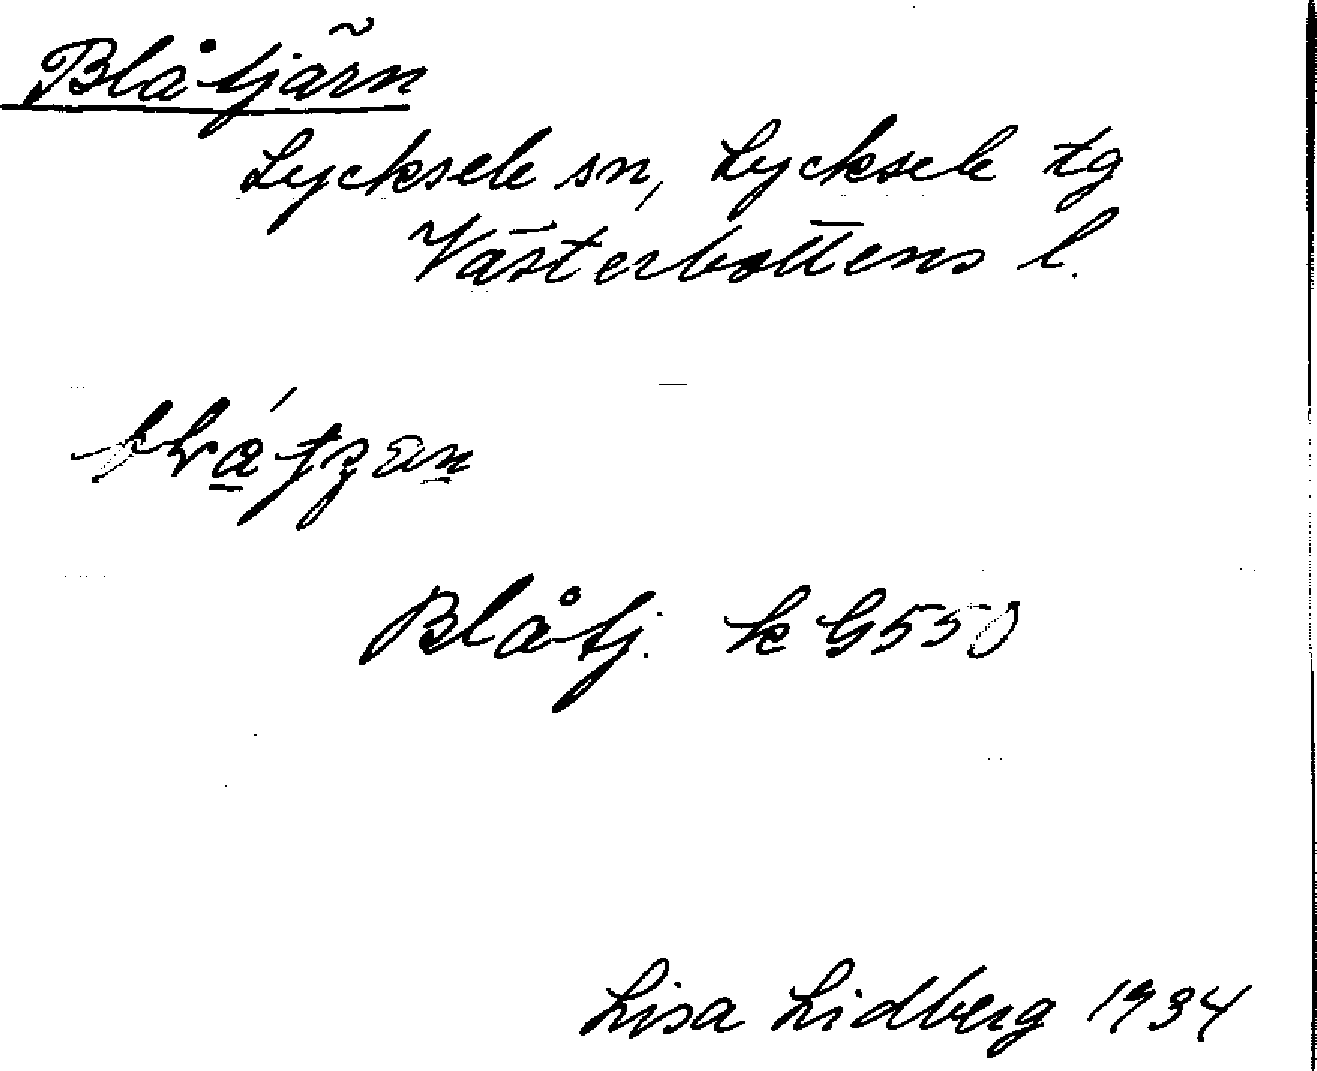 Blåtjärn
Lycksele sn, Lycksele tg
Västerbottens l.
Blåtj. k G550
Lisa Lidberg 1934